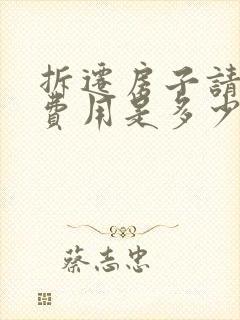 拆遷房子請
費用是多少
蔡志忠